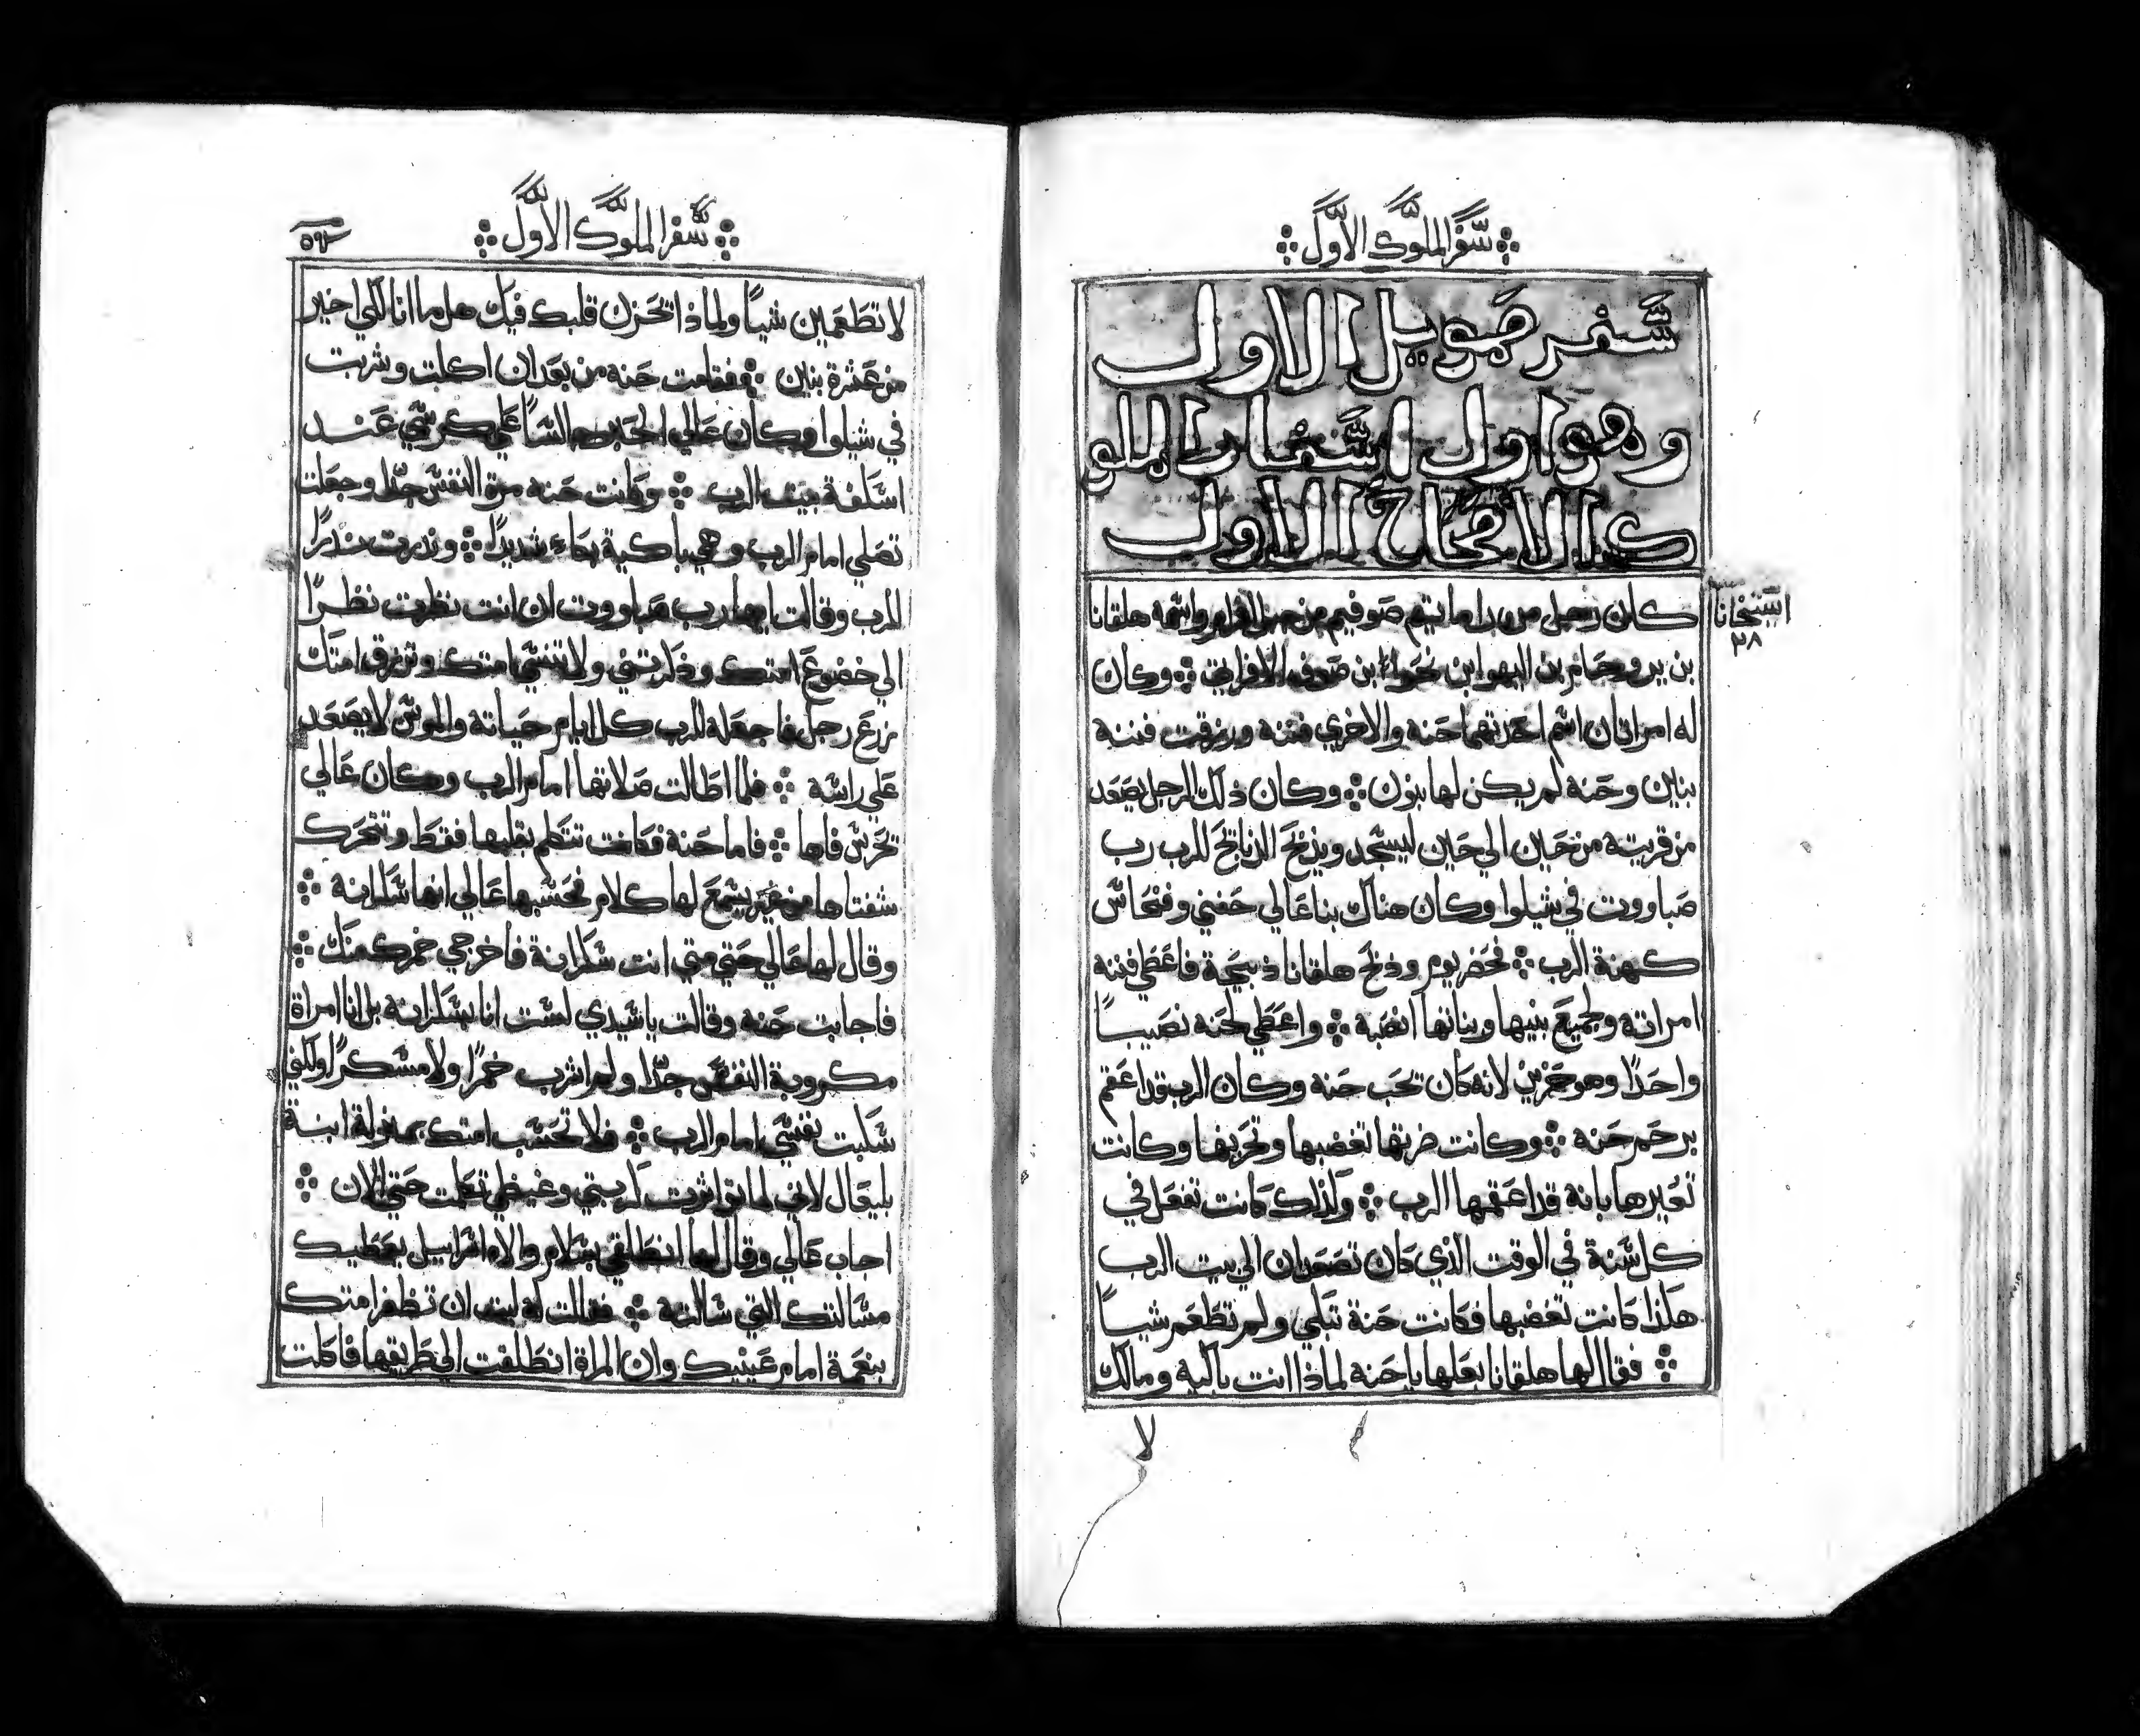 سفر الملوك الاول
سفر صمويل الاول
وهو اول اسفار الملو
ك الاصحاح الاول
كان رجل من راماتيم صوفيم من جبل افرام واسمه هلقانا
استخانا
٢٨
بن يروحام بن اليهوا بن نحوا بن صوف الافراتي وكان
له امراتان اسم احدتهما حنه والاخري فننه ورزقت فننه
بناين وحنه لم يكن لها بنون وكان ذلك الرجل يصعد
من قريته من حين الي حين ليسجد ويذبح الذبايح للرب رب
صباووت في شيلوا وكان هناك بنا عالي حفني وفنحاس
كهنة الرب فحضر يوم وذبح هلقانا ذبيحة فاعطي فننه
امراته ولجميع بنيها وبناتها انصبه واعطي لحنه نصيباً
واحداً وهو حزين لانه كان تحب حنه وكان الرب قد اعقم
برحم حنه وكانت ضرتها تغضبها وتحزنها وكانت
تعيرها بانه قد اعقمها الرب ولذلك كانت تفعل في
كل سنة في الوقت الذي كان تصعدان الي بيت الرب
هكذا كانت تغضبها فكانت حنة تبكي ولم تطعم شيباً
فقال لها هلقانا بعلها يا حنه لماذا انت باكيه ومالك
لا
سفر الملوك الاول
لا تطعمين شيباً ولماذا تحزن قلبك فيك هل ما انا لكي اخير
من عشرة بناين فقامت حنه من بعد ان اكلت وشربت
في شيلوا وكان عالي الحبر جالساً علي كرسي عند
اسكفة بيت الرب وكانت حنه مرة النفس جداً وجعلت
تصلي امام الرب وهي باكية بكاء شديداً ونذرت نذراً
للرب وقالت ايها رب صباووت ان انت نظرت نظراً
الي خضوع امتك وذكرتني ولا تنسي امتك وترزق امتك
زرع رجل فاجعله للرب كل ايام حياته والموس لا يصعد
علي راسه فلما اطالت صلاتها امام الرب وكان عالي
تحرس فاها فاما حنة فكانت تتكلم بقلبها فقط وتتحرك
شفتاها من غير يسمع لها كلام فحسبها عالي انها سكرانة
وقال لها عالي حتي متي انت سكرانة فاخرجي خمرك منك
فاجابت حنه وقالت يا سيدي لست انا بسكرانه بل انا امراة
مكروبة النفس جداً ولم اشرب خمراً ولا مسكراً ولكني
سكبت نفسي امام الرب فلا تحسب امتك بمنزلة ابنة
بليعال لاني لما تواترت كربتي وغيظي تكلمت حتي الان
اجاب عالي وقال لها انطلقي بسلام والاه اسراييل يعطيك
مسالتك التي سالته فقالت له ليت ان تظفر امتك
بنعمة امام عينيك وان المراة انطلقت الي طريقها فاكلت